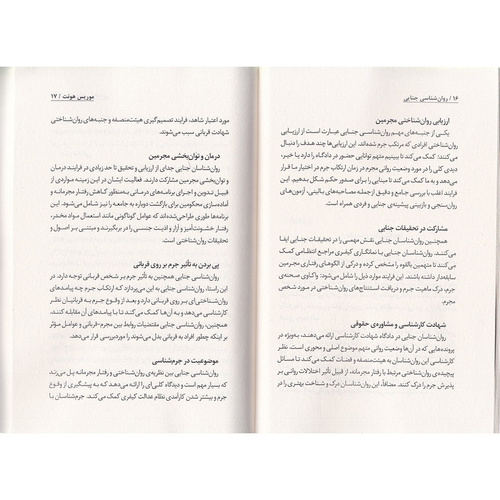 ۱۶ / روان‌شناسی جنایی
ارزیابی روان‌شناختی مجرمین
یکی از جنبه‌های مهم روان‌شناسی جنایی عبارت است از ارزیابی
روان‌شناختی افرادی که مرتکب جرم شده‌اند. این ارزیابی‌ها چند هدف را دنبال
می‌کنند: کمک می‌کند تا ببینیم متهم توانایی حضور در دادگاه را دارد یا خیر،
دیدی کلی را در مورد وضعیت روانی مجرم در زمان ارتکاب جرم در اختیار ما قرار
می‌دهد و به ما کمک می‌کند تا مبنایی را برای صدور حکم شکل بدهیم. این
فرایند اغلب با بررسی جامع و دقیق ازجمله مصاحبه‌های بالینی، آزمون‌های
روان‌سنجی و بازبینی پیشینهٔ جنایی و فردی همراه است.
مشارکت در تحقیقات جنایی
همچنین روان‌شناسان جنایی نقش مهمی را در تحقیقات جنایی ایفا
می‌کنند. روان‌شناسان جنایی با همکاری کیفری مراجع انتظامی کمک
می‌کنند تا متهمین بالقوه را مشخص کرده و درکی از الگوهای رفتاری مجرمین
سابقه‌دار داشته باشند. این فرایند شامل بررسی شواهد، واکاوی صحنهٔ
جرم، درک ماهیت جرم و دریافت استنتاج‌های روان‌شناختی از شخص
مجرم.
شهادت کارشناسی و مشاوره‌ی حقوقی
روان‌شناسان جنایی در دادگاه شهادت کارشناسی ارائه می‌دهند، به‌ویژه در
پرونده‌هایی که در آن‌ها وضعیت روانی متهم موضوع اصلی و محوری است. نظر
کارشناسی این روان‌شناسان به هیئت‌منصفه و قضات کمک می‌کند تا مسائل
پیچیده‌ی روان‌شناختی مرتبط با رفتار مجرمانه، از قبیل تأثیر اختلالات روانی بر
پذیرش جرم را درک کنند. مضافاً، این روان‌شناسان درک و شناخت بهتری را در
موریس هوئت / ۱۷
مورد اعتبار شاهد، فرایند تصمیم‌گیری هیئت‌منصفه و جنبه‌های روان‌شناختی
شهادت قربانی سبب می‌شوند.
درمان و توان‌بخشی مجرمین
روان‌شناسان جنایی جدای از ارزیابی و تحقیق تا حد زیادی در درمان
و توان‌بخشی مجرمین مشارکت دارند. فعالیت ایشان در این زمینه مواردی از
قبیل تدوین و اجرای برنامه‌های درمانی به‌منظور کاهش رفتار مجرمانه و
آماده‌سازی محکومین برای بازگشت دوباره به جامعه را نیز شامل می‌شود. این
برنامه‌ها طوری طراحی‌شده‌اند که عوامل گوناگونی مانند استعمال مواد مخدر،
رفتار خشونت‌آمیز و آزار و اذیت جنسی را در بربگیرند و مبتنی بر اصول و
تحقیقات روان‌شناختی است.
پی بردن به تأثیر جرم بر روی قربانی
روان‌شناسی جنایی به تأثیر جرم بر شخص قربانی توجه دارد. در
این راستا، روان‌شناس جنایی به این می‌پردازد که ارتکاب جرم چه پیامدهای
روان‌شناختی‌ای بر روی قربانی دارد و بعد از وقوع جرم به قربانیان نظر
می‌دهد و به آن‌ها کمک می‌کند تا با پیامدهای آن مقابله کنند.
همچنین، روان‌شناسان جنایی مقتضیات روابط بین مجرم-قربانی و عوامل مؤثر
بر اینکه چطور افراد به قربانی بدل می‌شوند را موردبررسی قرار می‌دهد.
موضوعیت در جرم‌شناسی
روان‌شناسی جنایی بین نظریه‌ی روان‌شناختی و رفتار مجرمانه پل می‌زند
که بسیار مهم است و دیدگاه کلی‌ای را ارائه می‌دهد که به پیشگیری از وقوع
جرم و بیشتر شدن کارآمدی نظام عدالت کیفری کمک می‌کند. جرم‌شناسان با